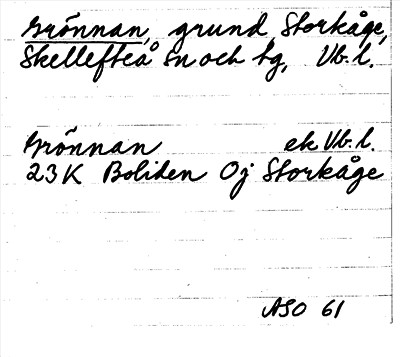 Grönnan, grund, Storkåge,
Skellefteå sn och tg, Vb. l.
Grönnan ek Vb. l.
23K Boliden Oj Storkåge
ASO 61